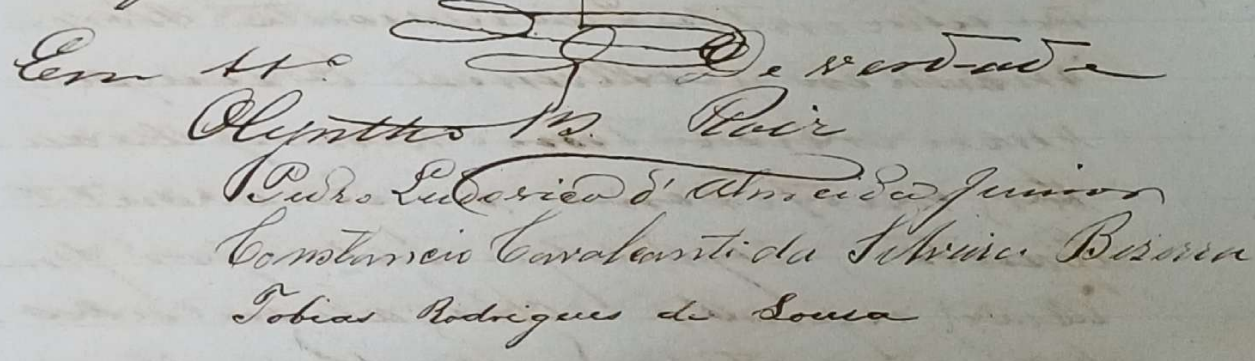 Em tt.º de verdade
Olyntho B. Roiz
Pedro Ludovico d'Almeida Junior
Constancio Cavalcanti da Silveira Bezerra
Tobias Rodrigues de Sousa